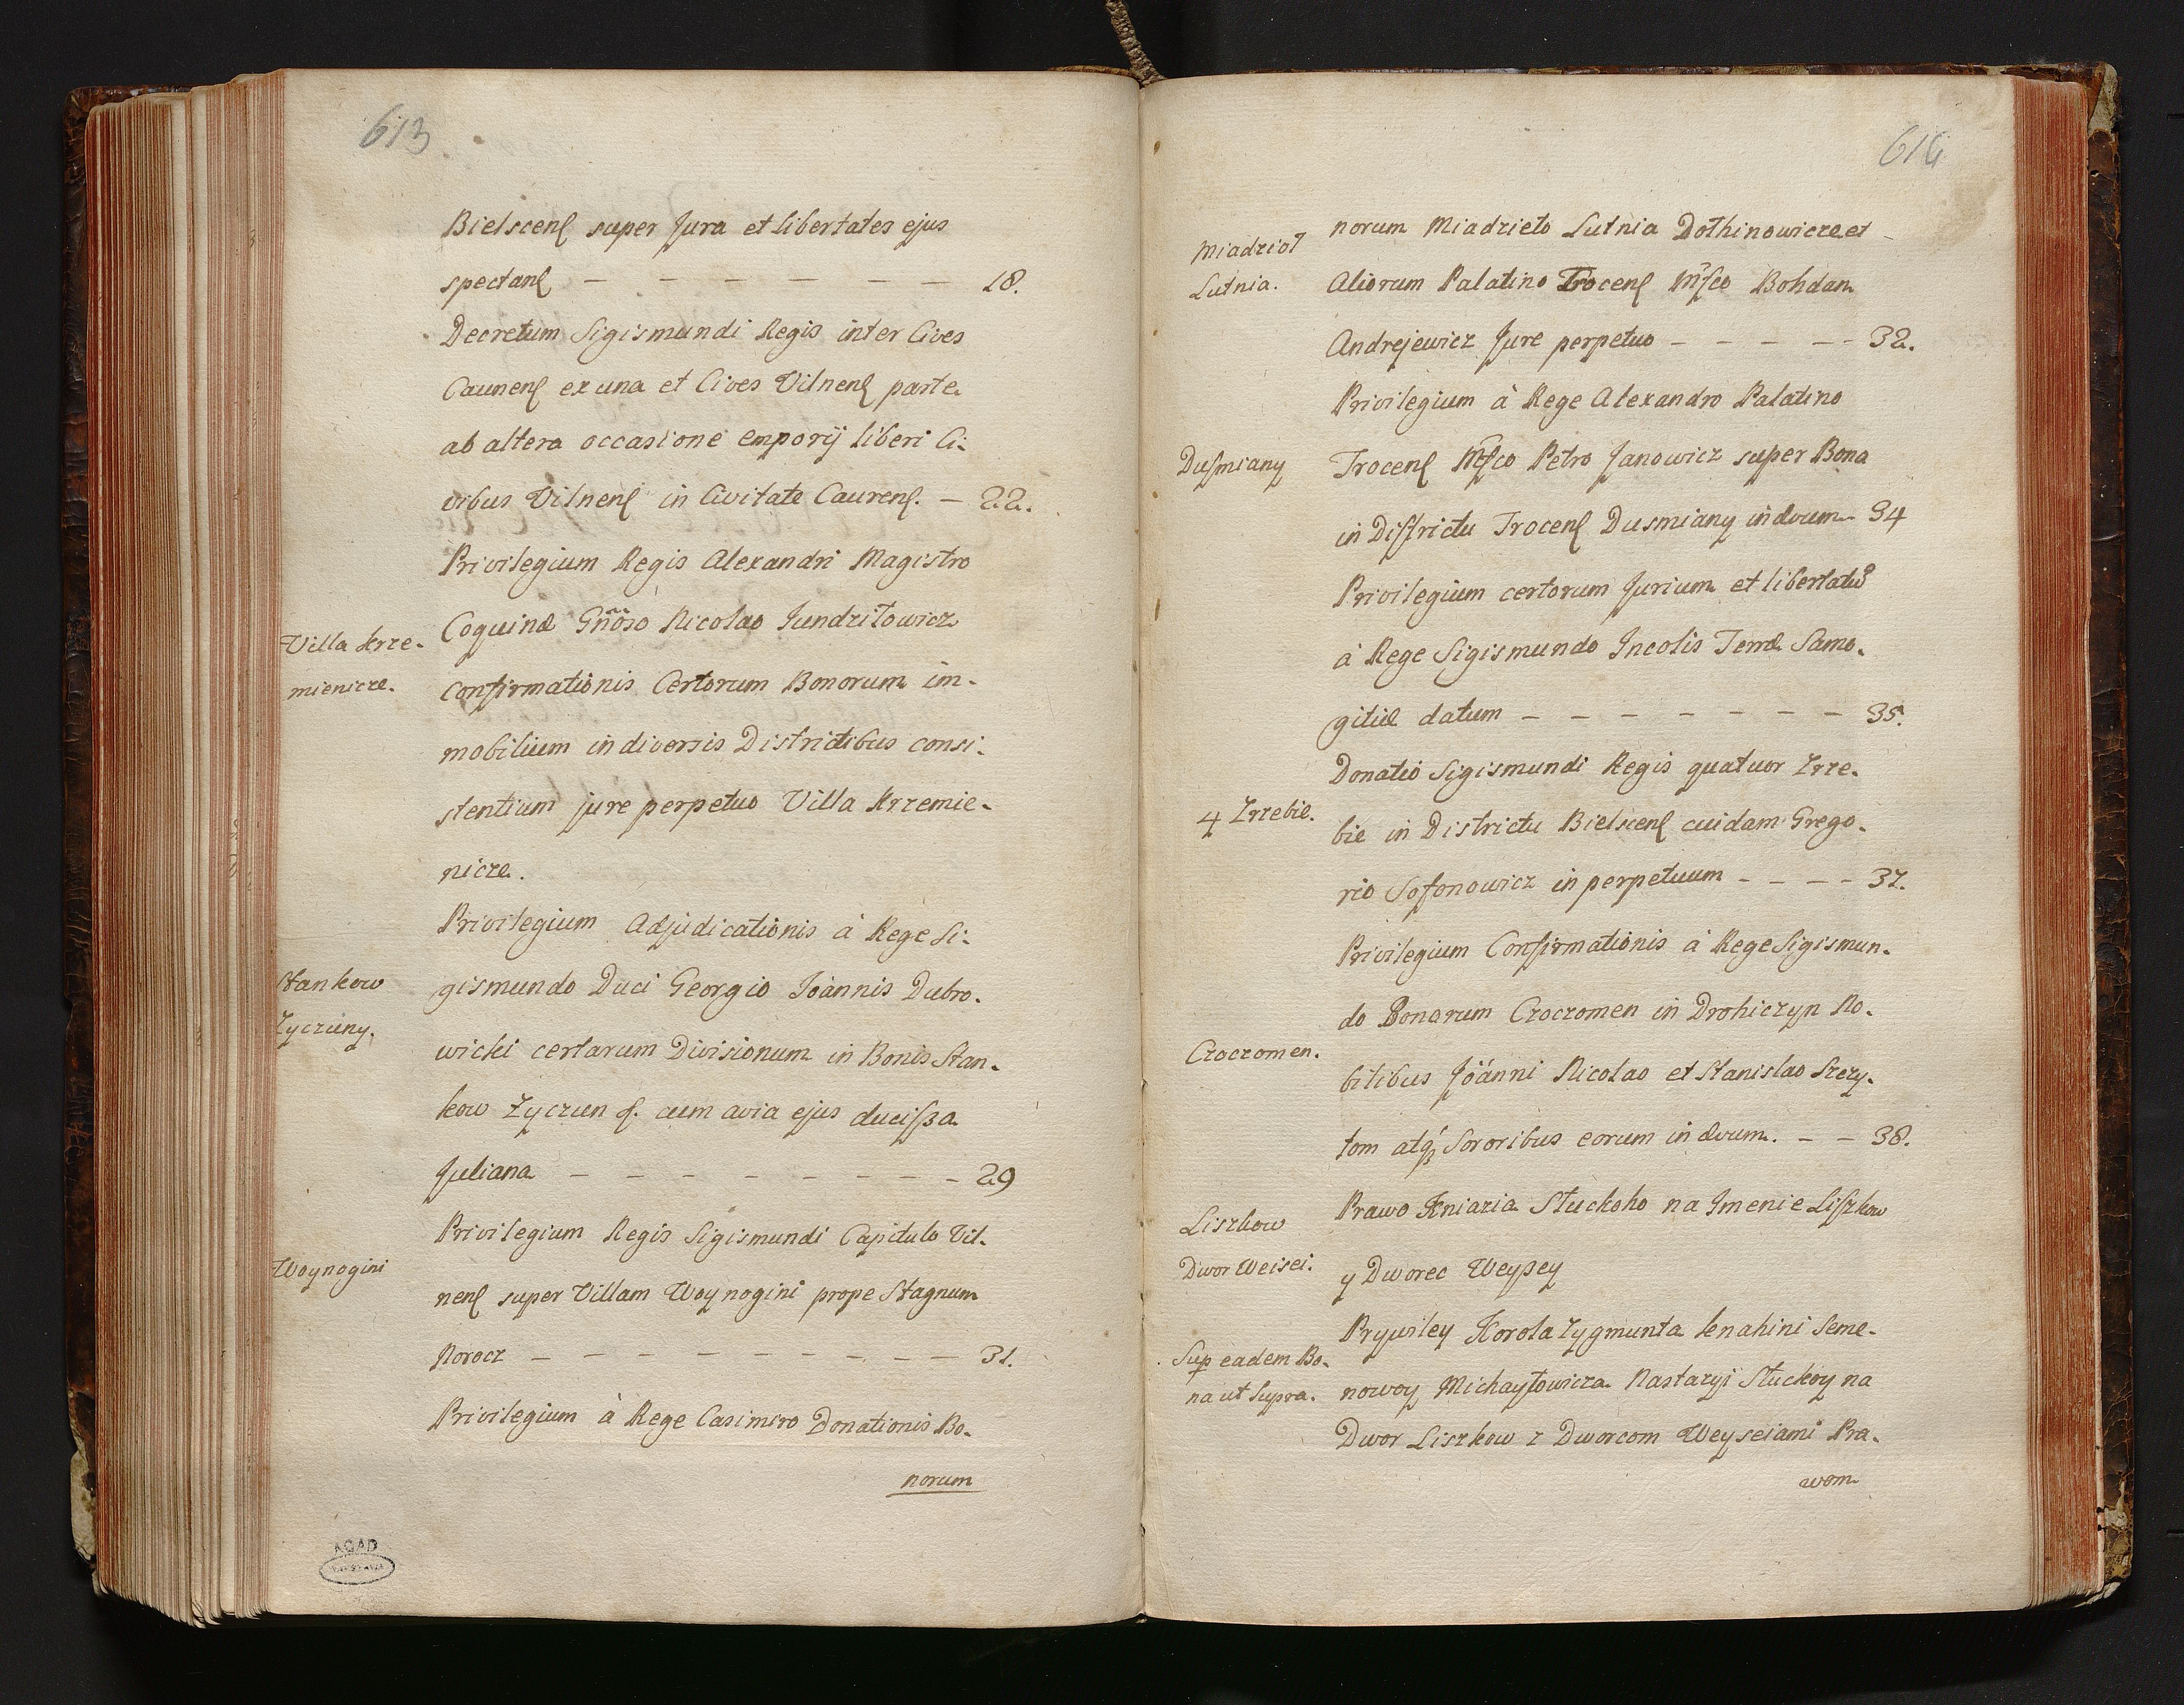 613
Bielscenſ super Jura et libertates ejus
spectanſ — — — — — — — 18.
Decretum Sigismundi Regis inter Cives
Caunenſ ex una et Cives Vilnenſ parte
ab altera occasione emporij liberi Ci-
vibus Vilnenſ in Civitate Caurenſ. — 22.
Privilegium Regis Alexandri Magistro
Villa Krze-
mienicze.
Coquinæ Gnoso Nicolao Jundziłowicz
confirmationis Certorum Bonorum im-
mobilium in diversis Districtibus consi-
stentium jure perpetuo Villa Krzemie-
nicze.
Privilegium Adjudicationis à Rege Si-
Stankow
Zyczuny.
gismundo Duci Georgio Joannis Dubro-
wicki certarum Divisionum in Bonis Stan-
kow Zyczun &. cum avia ejus duciſsa
Juliana — — — — — — — — 29
Privilegium Regis Sigismundi Capitulo Vil-
Woynogini
nenſ super Villam Woynogini prope Stagnum
Norocz — — — — — — — — 31.
Privilegium à Rege Casimiro Donationis Bo-
norum
AGAD
614
Miadzioł
Lutnia.
norum Miadzieło Lutnia Dołhinowicze et
Aliorum Palatino Trocenſ Mſco Bohdan
Andrejewicz Jure perpetuo — — — — — 32.
Privilegium à Rege Alexandro Palatino
Duſmiany
Trocenſ Mſco Petro Janowicz super Bona
in Diſtrictu Trocenſ Dusmiany in ævum — 34
Privilegium certorum Jurium et libertatũ
à Rege Sigismundo Incolis Terræ Samo-
gitiæ datum — — — — — — — 35.
Donatio Sigismundi Regis quatuor Zrze-
4 Zrzebie.
bie in Districtu Bielscenſ cuidam Grego-
rio Sofonowicz in perpetuum — — — — 37.
Privilegium Confirmationis à Rege Sigismun-
do Bonorum Czoczomen in Drohiczyn No-
Czoczomen.
bilibus Joanni Nicolao et Stanislao Szczy-
tom atqꝫ Sororibus eorum in ævum. — — 38.
Liszkow
Dwor Weisei.
Prawo Kniazia Słuckoho na Imenie Liſzkow
y Dworec Weyßey
Prywiley Korola Zygmunta Knahini Seme-
Sup eadem Bo-
na ut Supra.
nowoy Michayłowicza Nastazyi Słuckoy na
Dwor Liszkow z Dworcom Weyseiami Pra-
wom